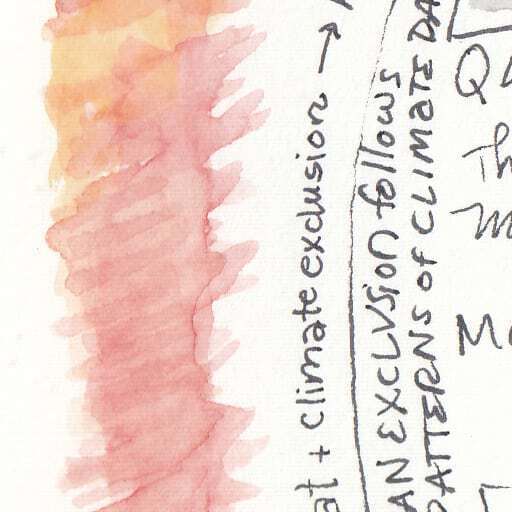 at + climate exclusion →
AN EXCLUSION follows
PATTERNS of CLIMATE DA
Q
Th
M